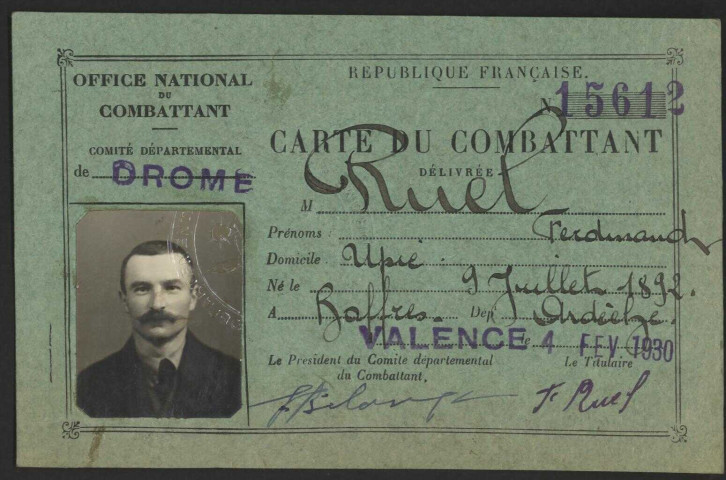 OFFICE NATIONAL
DU
COMBATTANT
COMITÉ DÉPARTEMENTAL
de DROME
RÉPUBLIQUE FRANÇAISE.
N 15612
CARTE DU COMBATTANT
DÉLIVRÉE
M Ruel
Prénoms : Ferdinand
Domicile : Upie
Né le 9 Juillet 1892.
A Dep Ardèche.
VALENCE le 4 FEV 1930
Le Président du Comité départemental
du Combattant,
Le Titulaire
F Ruel